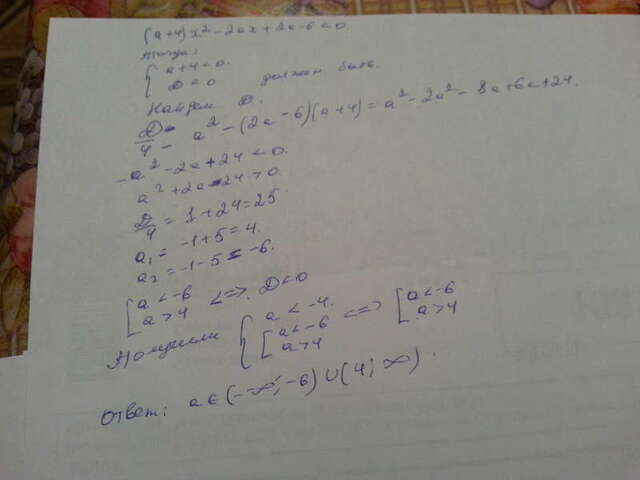 (a+4)x² - 2ax + 2a - 6 < 0.
тогда:
{ a+4 < 0.
D < 0 должен быть.
Найдем D.
D/4 = a² - (2a-6)(a+4) = a² - 2a² - 8a + 6a + 24.
-a² - 2a + 24 < 0.
a² + 2a - 24 > 0.
D/4 = 1 + 24 = 25
a₁ = -1+5 = 4.
a₂ = -1-5 = -6.
[ a < -6
a > 4 <=> D < 0
{ a < -4.
[ a < -6
a > 4 <=> [ a < -6
a > 4
Ответ: a ∈ (-∞; -6) ∪ (4; ∞).